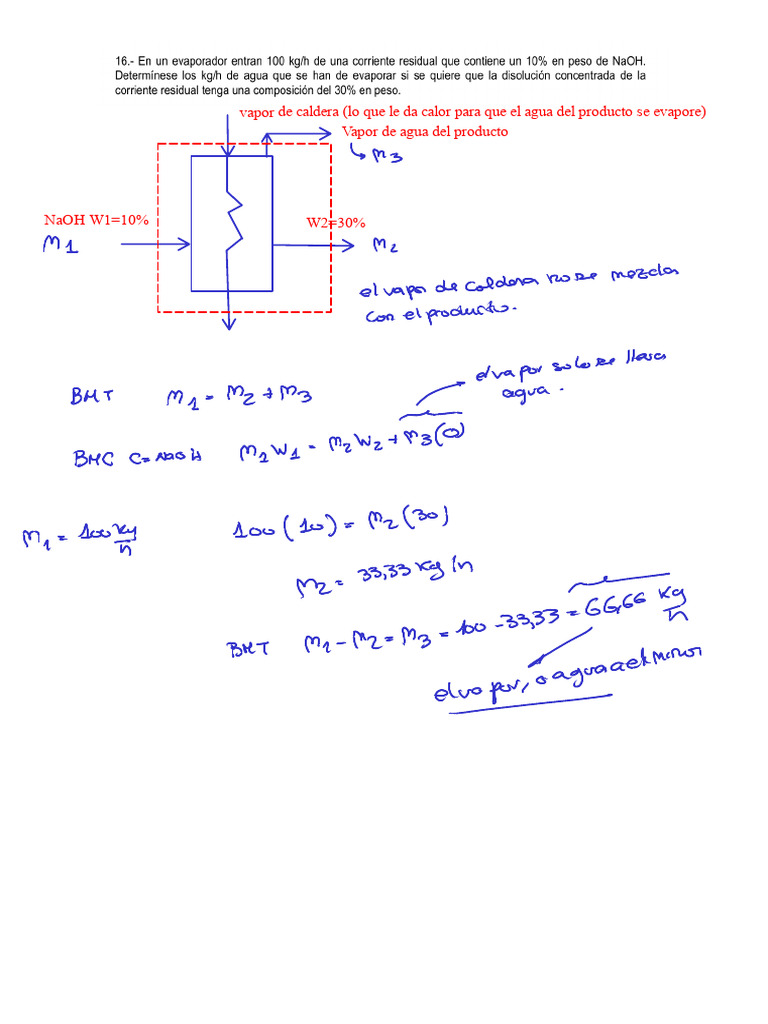 16.- En un evaporador entran 100 kg/h de una corriente residual que contiene un 10% en peso de NaOH.
Determínese los kg/h de agua que se han de evaporar si se quiere que la disolución concentrada de la
corriente residual tenga una composición del 30% en peso.
vapor de caldera (lo que le da calor para que el agua del producto se evapore)
Vapor de agua del producto
M3
NaOH W1=10%
W2=30%
M1
M2
el vapor de caldera no se mezcla
con el producto.
el vapor solo se lleva
agua.
BMT M1 = M2 + M3
BMC C=NaOH M1W1 = M2W2 + M3(0)
M1 = 100 Kg/h
100(10) = M2(30)
M2 = 33,33 Kg/h
BMT M1 - M2 = M3 = 100 - 33,33 = 66,66 Kg/h
el vapor, o agua